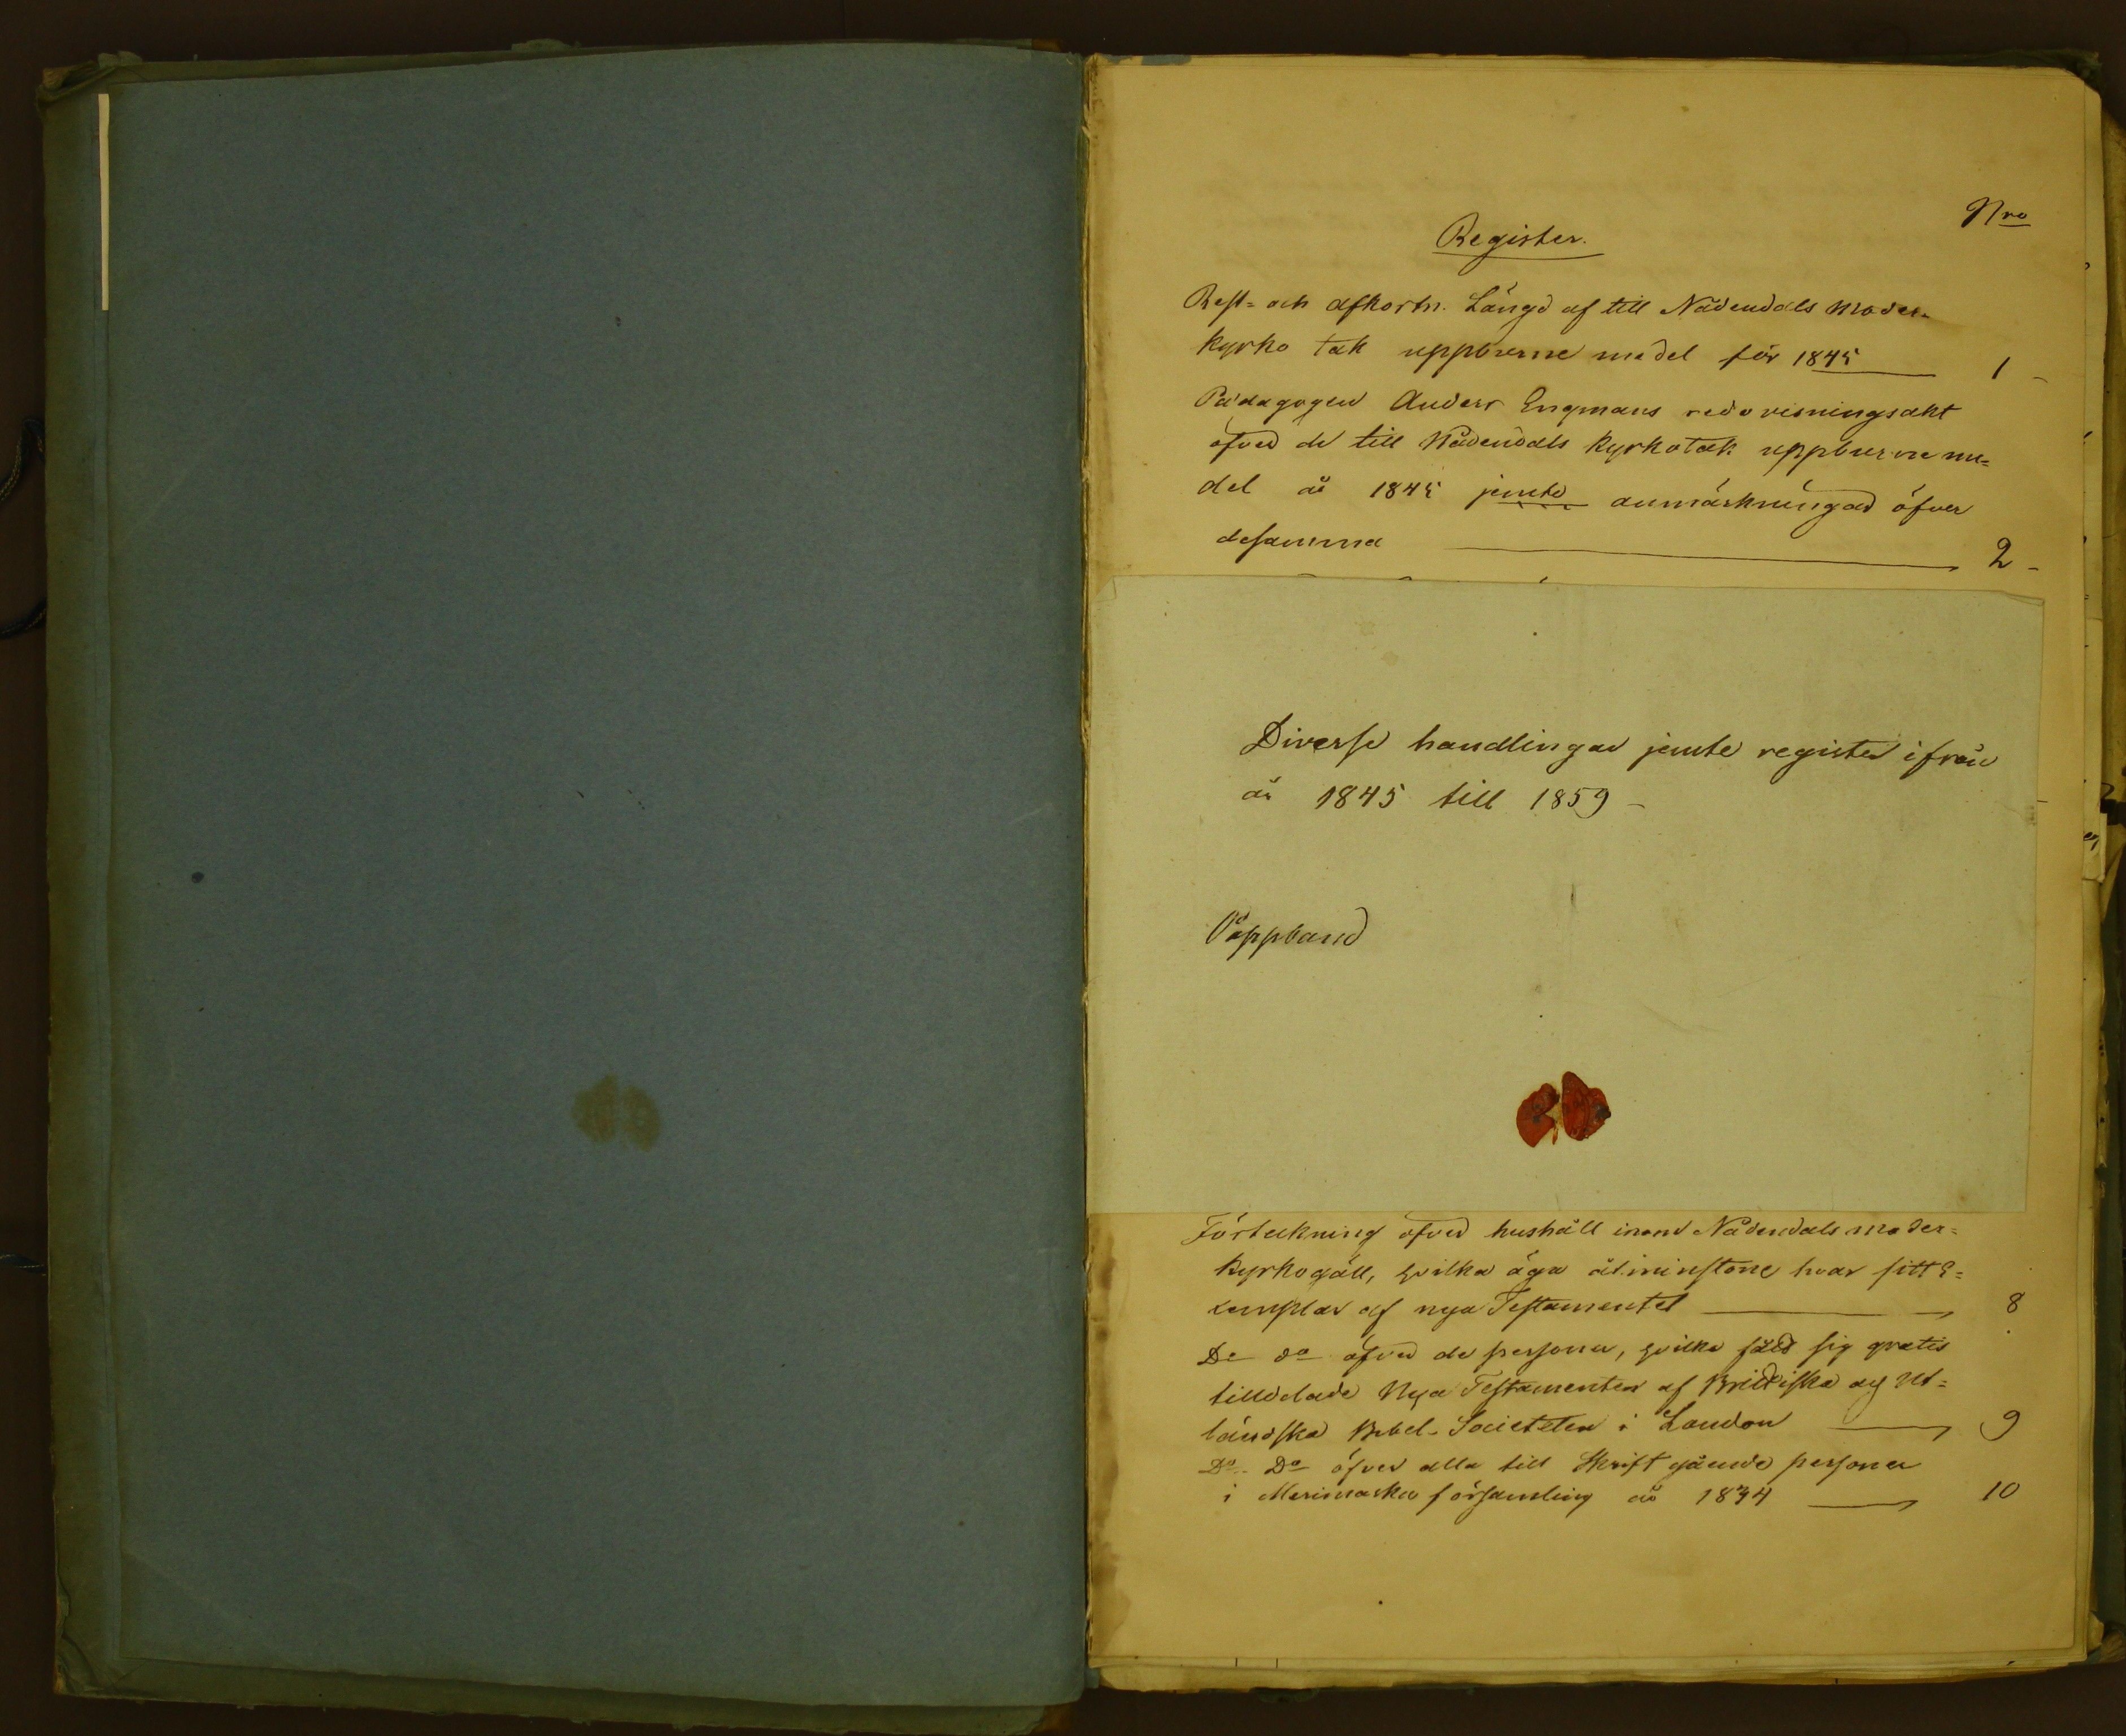 Nro
Register.
Rest= och afkortn. Längd af till Nådendals moder-
kyrko tak uppburne medel för 1845 1
Pädagogen Anders Engmans redovisningsakt
öfver de till Nådendals kyrkotak uppburne me=
del år 1845 jemte anmärkningar öfver
desamma 2
Diverse handlingar jemte register ifrån
år 1845 till 1859
Pappband
Förteckning öfver hushåll inom Nådendals moder=
kyrkogäll, hvilka äga åtminstone hvar sitt E=
xemplar af nya Testamentet 8
Do do öfver de personer, hvilka fått sig gratis
tilldelade Nya Testamenter af Brittiska och Ut=
ländska Bibel-Societeten i London 9
Do Do öfver alla till Skrift gående personer
i Merimasku församling år 10